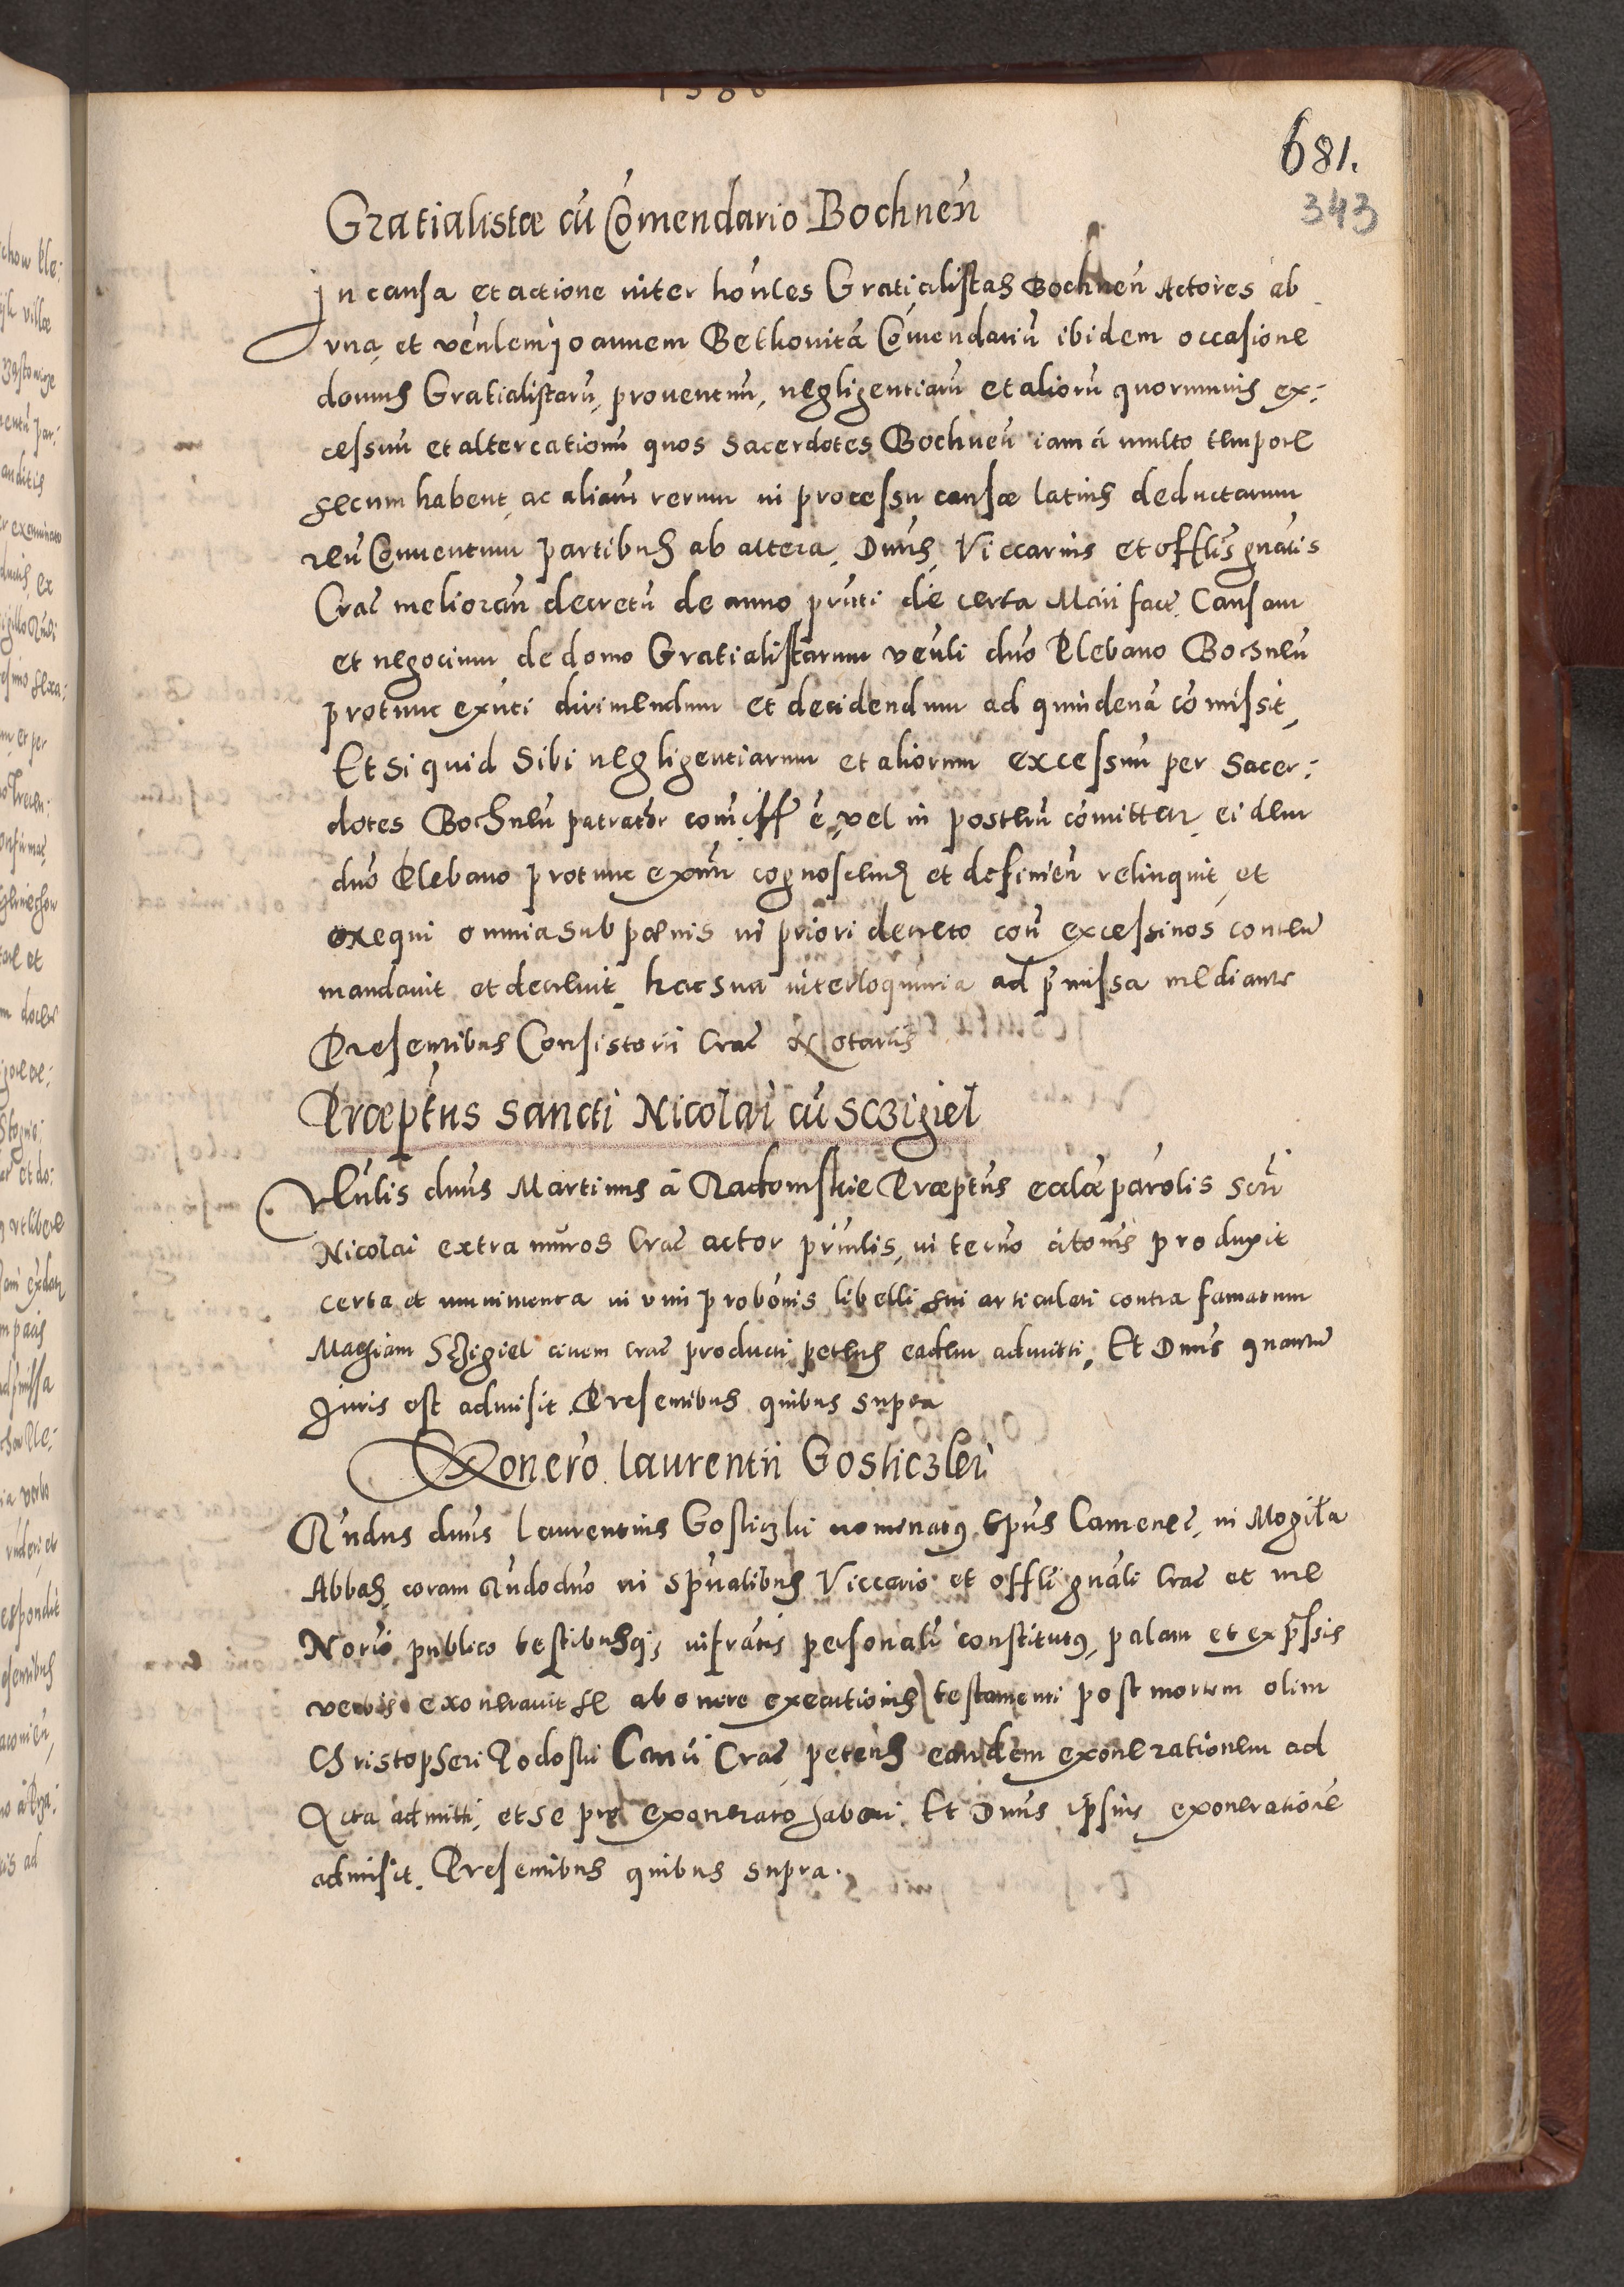 1586
681.
343
Gratialistæ cū Com̄endario Bochnen̄
In causa et actione inter hon̄les Gratialistas Bochnen̄ Actores ab
vna, et ven̄lem Joannem Bethonitā Com̄endariū ibidem occasione
domus Gratialistarū, proventuū, negligentiarū et aliorū quorumvis ex:
cessuū et altercationū quos Sacerdotes Bochnen̄ iam à multo tempore
secum habent, ac aliarū rerum in processu causæ latius deductarum
reū Conventum partibus ab altera, Dn̄us, Viccarius et offlīs gnālis
Crac̄ decretū de anno prn̄ti de Maii Causam
et negocium de domo Gratialistarum ven̄li dn̄o Plebano Bochnen̄
protunc exn̄ti dirimendum et decidendum ad quindenā com̄isit,
Et si quid Sibi negligentiarum et aliorum excessuū per Sacer:
dotes Bochnen̄ patratur ē, vel in posterū com̄ittetur, eidem
dn̄o Plebano protunc exn̄ti cognoscendū et definien̄ relinquit, et
exequi omnia sub pœnis in priori decreto con̄ excessivos conten̄
mandavit et decrevit, hac sua interloquutoria ad p̄missa mediante
Presentibus Consistorii Crac̄ Notariis
Præp̄tus Sancti Nicolai cū Sczigiel
Ven̄lis dn̄us Martinus à Radomskie Præp̄tus ecclæ parolis Scti
Nicolai extra muros Crac̄ actor prn̄lis, in termo citon̄is produxit
certa et munimenta in vim probon̄is libelli sui articulati contra famatum
Mathiam Sczigiel civem Crac̄ producti, petens eadem admitti, Et Dn̄us quantū
Juris est admisit Presentibus quibus supra
Exonero Laurentii Gosliczlei
Rn̄dus dn̄us Laurentius Gosliczki nominatus Ep̄us Camenec̄, in Mogiła
Abbas, coram Rn̄do dn̄o in Spn̄alibus Viccario et offli gnāli Crac̄ et me
Norio publico testibusq; infrātis personalr̄ constitutus, palam et exp̄ssis
verbis exoneravit se ab onere executionis testamenti post mortem olim
Christopheri Podoski Canci Crac̄ petens eandem exonerationem ad
Acta admitti, et se pro exonerato haberi. Et Dn̄us ipsius exonerationē
admisit. Presentibus quibus supra.